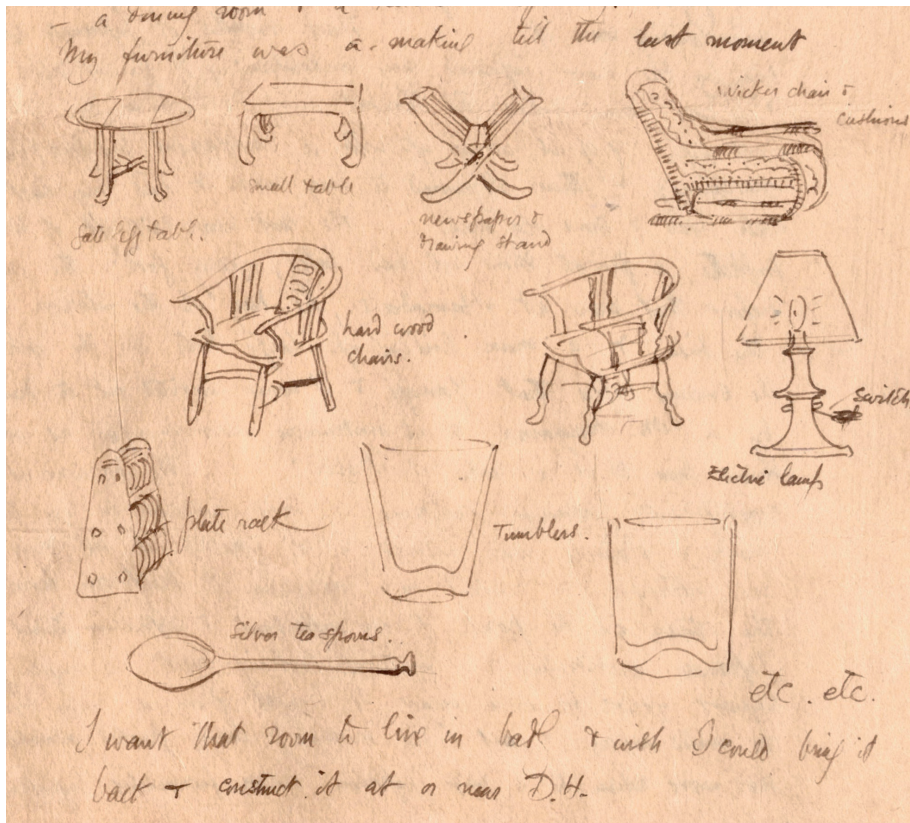 – a dining room & a
My furniture was a-making till the last moment
wicker chair &
cushions
small table
gate leg table.
newspaper &
drawing stand
hard wood
chairs.
switch
Electric lamp
plate rack
Tumblers.
Silver tea spoons.
etc. etc.
I want that room to live in badly & wish I could bring it
back & construct it at or near D.H.